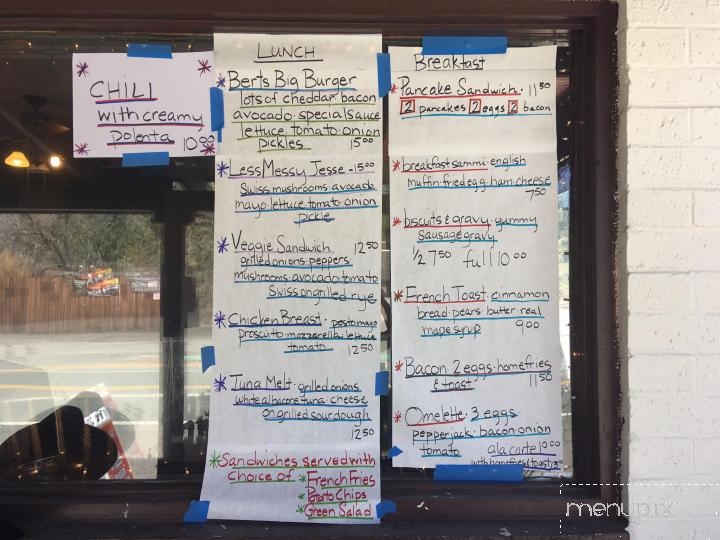 CHILI
with creamy
polenta
10.00
LUNCH
Berts Big Burger
lots of cheddar, bacon
avocado. special sauce
lettuce, tomato. onion
pickles 15.00
Less Messy Jesse - 15.00
Swiss mushrooms. avocado.
mayo. lettuce tomato onion
pickle
Veggie Sandwich 12.50
grilled onions. peppers.
mushrooms. avocado tomato
Swiss on grilled rye
Chicken Breast. pesto mayo
proscuito. mozzarella lettuce
tomato 12.50
Tuna Melt. grilled onions
white albacore tuna. cheese
on grilled sourdough
12.50
Sandwiches served with
Choice of French Fries
Potato Chips
Green Salad
Breakfast
Pancake Sandwich. 11.50
2 pancakes 2 eggs 2 bacon
breakfast sammi. english
muffin. fried egg. ham. cheese
7.50
biscuits & gravy. yummy
Sausage gravy
1/2 7.50 full 10.00
French Toast. cinnamon
bread. pears. butter. real
maple syrup 9.00
Bacon 2 eggs. homefries
& toast 11.50
Omelette. 3 eggs
pepperjack. bacon. onion
tomato ala carte 10.00
with homefries & toast
menupix